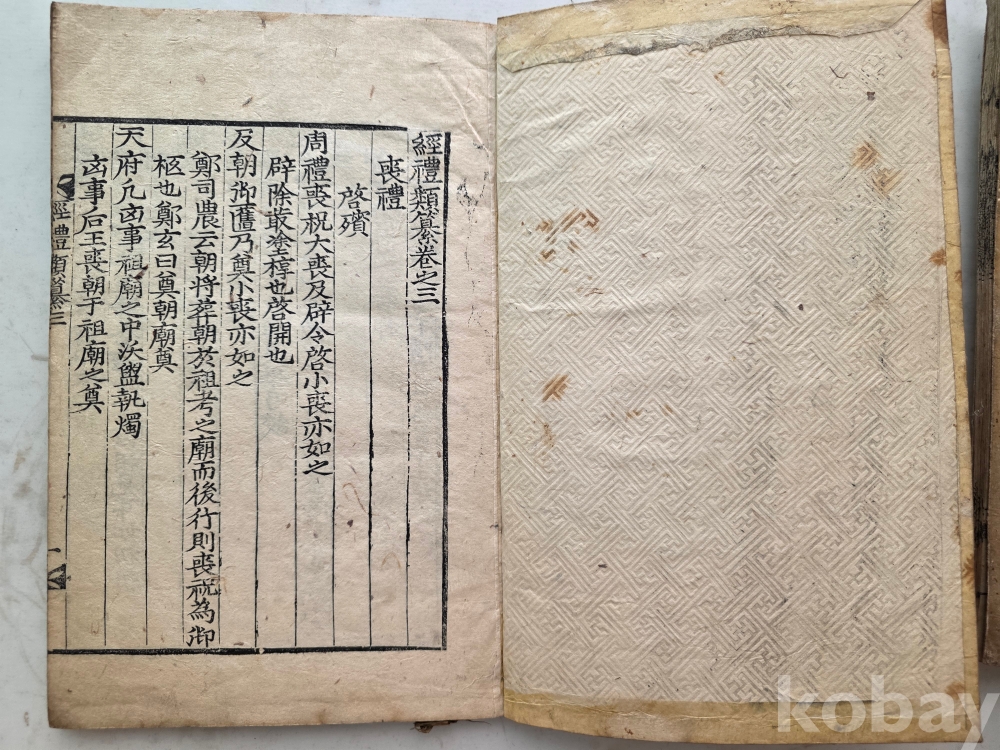 經禮類纂卷之三
喪禮
啓殯
周禮喪祝大喪及辟令啓小喪亦如之
辟除菆塗椁也啓開也
及朝御匶乃奠小喪亦如之
鄭司農云朝將葬朝於祖考之廟而後行則喪祝為御
柩也鄭玄曰奠朝廟奠
天府凡凶事祖廟之中沃盥執燭
凶事后王喪朝于祖廟之奠
經禮類纂三
一
kobay